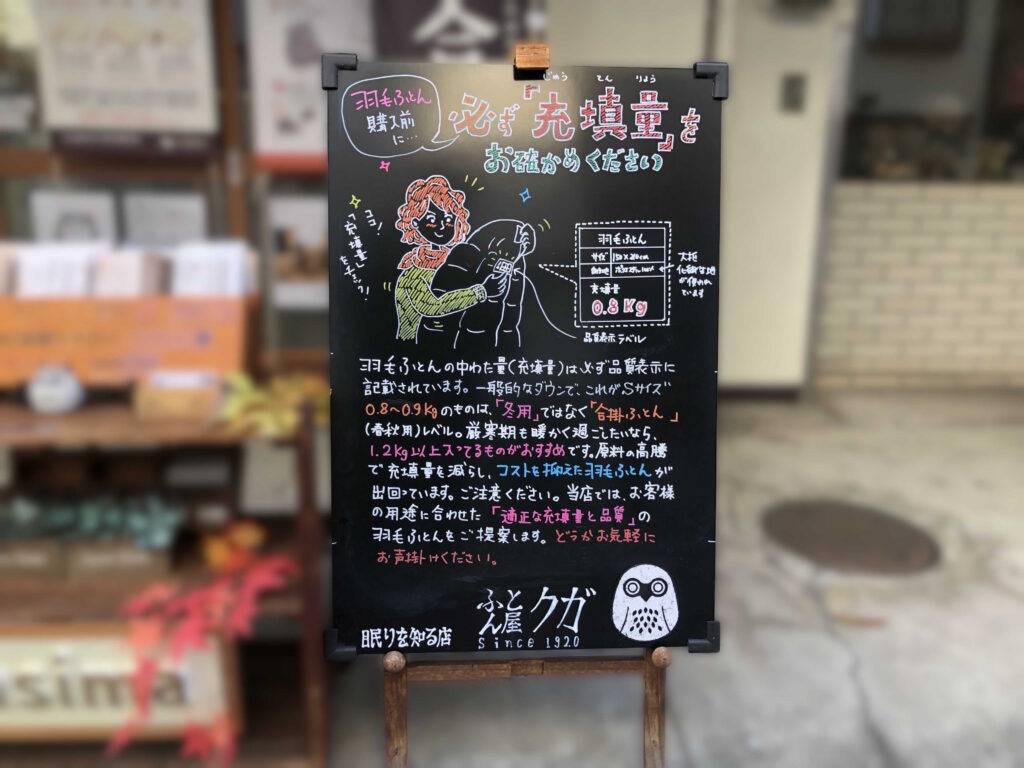 羽毛ふとん
購入前
に…
じゅう てん りょう
必ず「充填量」を
お確かめください
ココ!
「充填量」
をチェック!
羽毛ふとん
サイズ 150×210cm
充填量
0.8Kg
大抵
化繊な地
が使われ
ています
品質表示ラベル
羽毛ふとんの中わた量(充填量)は必ず品質表示に
記載されています。一般的なダウンで、これがSサイズ
0.8〜0.9Kgのものは、「冬用」ではなく「合掛ふとん」
(春秋用)レベル。厳寒期も暖かく過ごしたいなら、
1.2Kg以上入ってるものがおすすめです。原料の高騰
で充填量を減らし、コストを抑えた羽毛ふとんが
出回っています。ご注意ください。当店では、お客様
の用途に合わせた「適正な充填量と品質」の
羽毛ふとんをご提案します。どうかお気軽に
お声掛けください。
眠りを知る店
ふとん屋クガ
Since 1920
sima